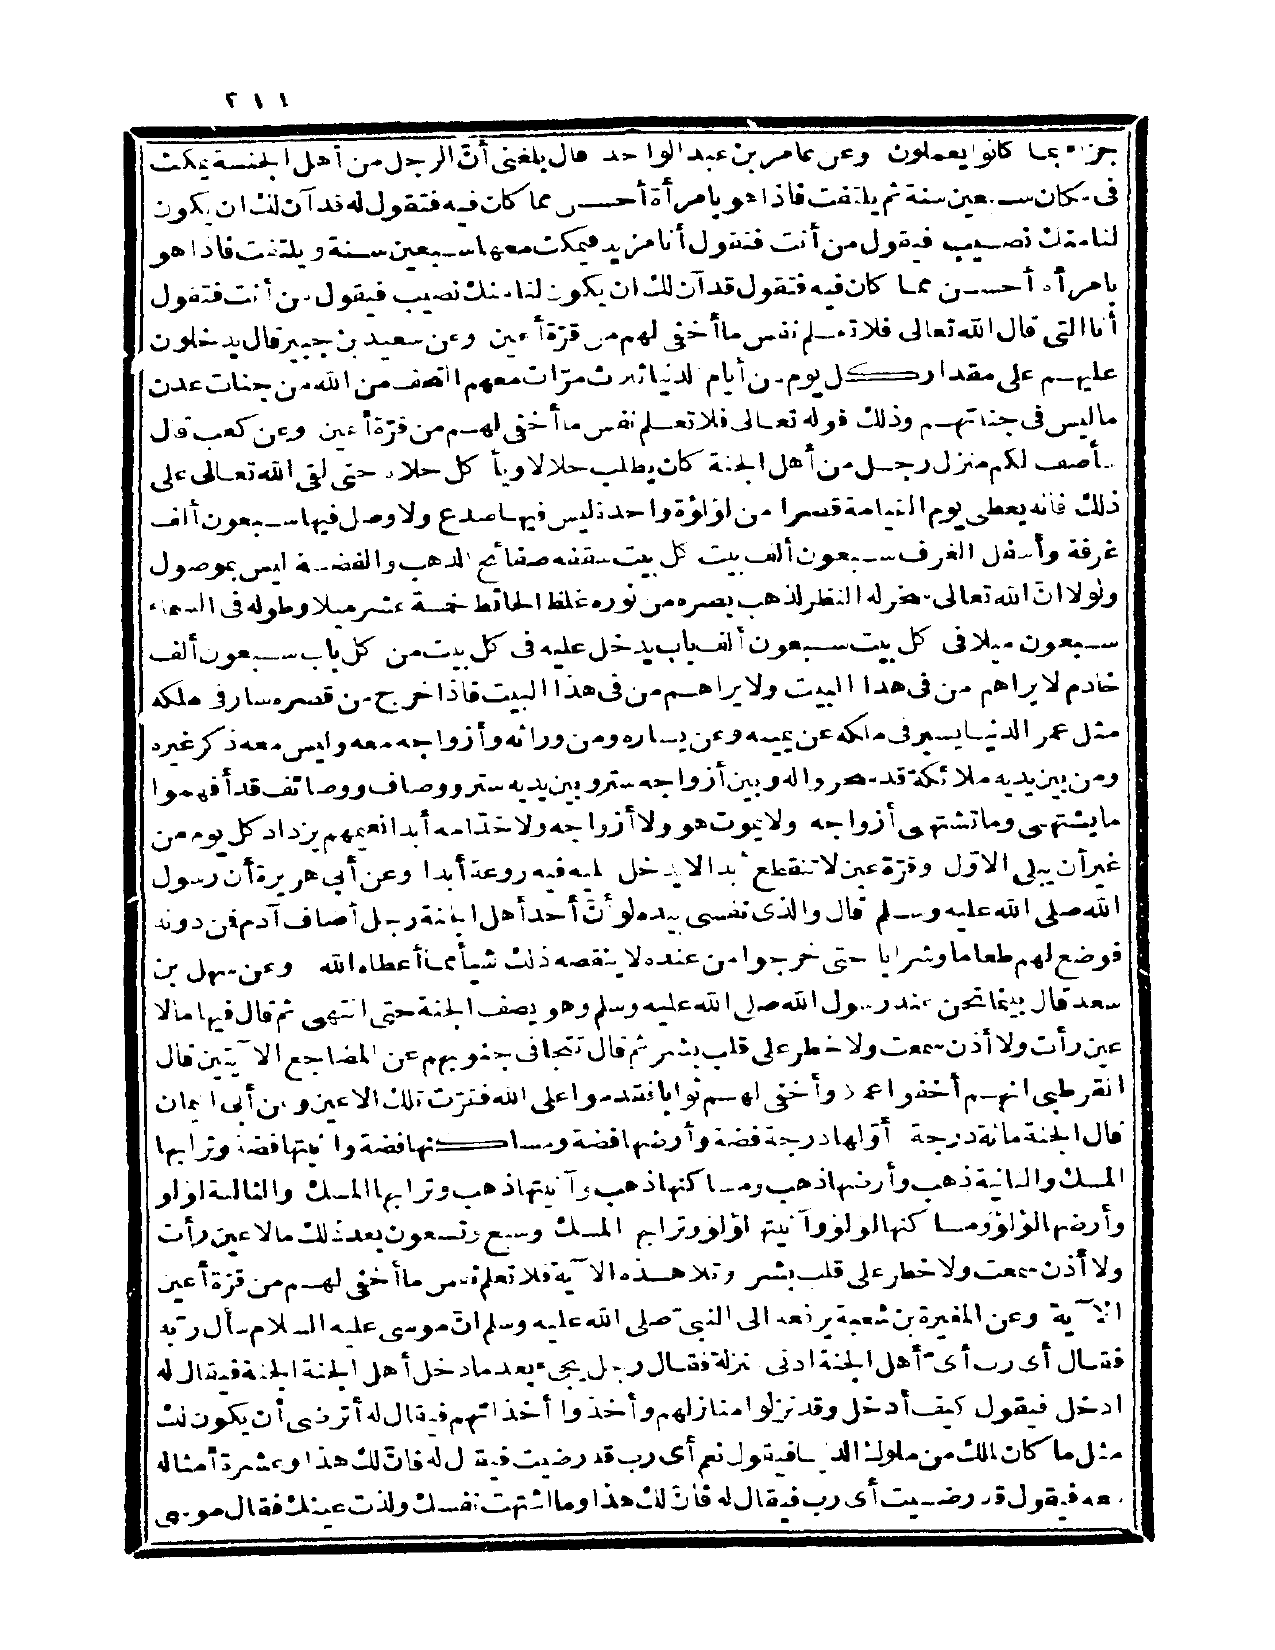 ٢١١
جزاء بما كانوا يعملون وعن عامر بن عبد الواحد قال بلغنى أنّ الرجل من أهل الجنسة يمكث
فى مكان سبعين سنة ثم يلتفت فاذا هو بامرأة أحسن مما كان فيه فتقول له قد آن لك ان يكون
لنا منك نصيب فيقول من أنت فتقول أنا مزيد فيمكث معها سبعين سنة ويلتفت فاذا هو
بامرأة أحسن مما كان فيه فتقول قد آن لك ان يكون لنا منك نصيب فيقول من أنت فتقول
أنا التى قال الله تعالى فلا تعلم نفس ما أخفى لهم من قرّة أعين وعن سعيد بن جبير قال يدخلون
عليهم على مقدار كل يوم من أيام الدنيا ثلاث مرّات معهم التحف من الله من جنات عدن
ما ليس فى جناتهم وذلك قوله تعالى فلا تعلم نفس ما أخفى لهم من قرّة أعين وعن كعب قال
سأصف لكم منزل رجل من أهل الجنة كان يطلب حلالا ويأكل حلالا حتى لقى الله تعالى على
ذلك فانه يعطى يوم القيامة قصرا من لؤلؤة واحدة ليس فيها صدع ولا وصل فيها سبعون ألف
غرفة وأسفل الغرف سبعون ألف بيت كل بيت سقفه صفائح الذهب والفضة ليس بموصول
ولولا انّ الله تعالى سخر له النظر لذهب بصره من نوره غلظ الحائط خمسة عشر ميلا وطوله فى السماء
سبعون ميلا فى كل بيت سبعون ألف باب يدخل عليه فى كل بيت من كل باب سبعون ألف
خادم لا يراهم من فى هذا البيت ولا يراهم من فى هذا البيت فاذا خرج من قصره سار فى ملكه
مثل عمر الدنيا يسير فى ملكه عن يمينه وعن يساره ومن ورائه وأزواجه معه وليس معه ذكر غيره
ومن بين يديه ملائكة قد سخروا له وبين أزواجه ستر وبين يديه ستر ووصاف ووصائف قد أفهموا
ما يشتهى وما تشتهى أزواجه ولا يموت هو ولا أزواجه ولا خدامه أبدا نعيمهم يزداد كل يوم من
غير أن يبلى الاوّل وقرّة عين لا تنقطع أبدا لا يدخل عليه فيه روعة أبدا وعن أبى هريرة أن رسول
الله صلى الله عليه وسلم قال والذى نفسى بيده لو أنّ أحد أهل الجنة رجل أضاف آدم فمن دونه
فوضع لهم طعاما وشرابا حتى خرجوا من عنده لا ينقصه ذلك شيأ مما أعطاه الله وعن سهل بن
سعد قال بينما نحن عند رسول الله صلى الله عليه وسلم وهو يصف الجنة حتى انتهى ثم قال فيها مالا
عين رأت ولا أذن سمعت ولا خطر على قلب بشر ثم قال تتجافى جنوبهم عن المضاجع الآيتين قال
القرطبى انهم أخفوا عملا وأخفى لهم ثوابا فقدموا على الله فقرّت تلك الاعين وعن أبى اليمان
قال الجنة مائة درجة أوّلها درجة فضة وأرضها فضة ومساكنها فضة وآنيتها فضة وترابها
المسك والثانية ذهب وأرضها ذهب ومساكنها ذهب وآنيتها ذهب وترابها المسك والثالثة لؤلؤ
وأرضها لؤلؤ ومساكنها لؤلؤ وآنيتها لؤلؤ وترابها المسك وسبع وتسعون بعد ذلك مالا عين رأت
ولا أذن سمعت ولا خطر على قلب بشر وتلا هذه الآية فلا تعلم نفس ما أخفى لهم من قرّة أعين
الآية وعن المغيرة بن شعبة يرفعه الى النبىّ صلى الله عليه وسلم انّ موسى عليه السلام سأل ربه
فقال أى رب أىّ أهل الجنة ادنى منزلة فقال رجل يجىء بعد ما دخل أهل الجنة الجنة فيقال له
ادخل فيقول كيف أدخل وقد نزلوا منازلهم وأخذوا أخذاتهم فيقال له أترضى أن يكون لك
مثل ما كان لملك من ملوك الدنيا فيقول نعم أى رب قد رضيت فيقال له فانّ لك هذا وعشرة أمثاله
معه فيقول قد رضيت أى رب فيقال له فانّ لك هذا وما اشتهت نفسك ولذت عينك فقال موسى